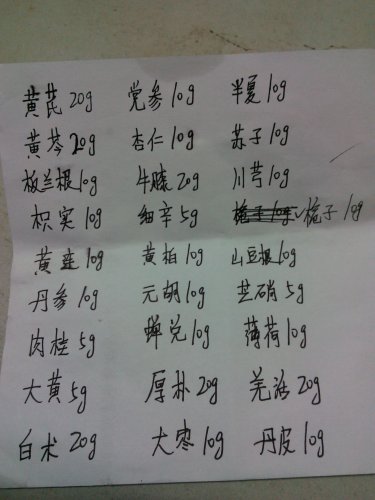 黄芪20g 党参10g 半夏10g
黄芩20g 杏仁10g 苏子10g
板兰根10g 牛膝20g 川芎10g
枳实10g 细辛5g 栀子10g
黄连10g 黄柏10g 山豆根10g
丹参10g 元胡10g 芒硝5g
肉桂5g 蝉兑10g 薄荷10g
大黄5g 厚朴20g 羌活20g
白术20g 大枣10g 丹皮10g